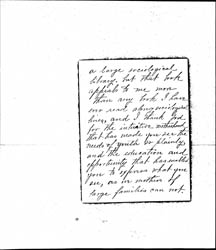 a large sociological
library, but that book
appeals to me more
than any book I have
ever read along sociological
lines, and I thank God
for the intuitive motherhood
that has made you see the
needs of youth so plainly
and the education and
opportunity that has enabled
you to express what you
see, as we mothers of
large families can not.